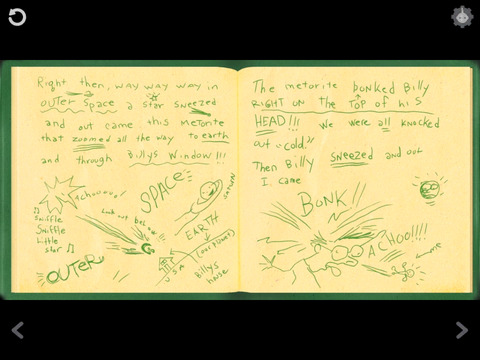 Right then, way way way in
outer space a star sneezed
and out came this metorite
that zoomed all the way to earth
and through Billys window!!!
Achooooo!
SPACE
SATURN
♫
Sniffle
Sniffle
Little
star ♫
Look out below
EARTH
(our planet)
U.S.A
Billys
house
OUTER
The metorite bonked Billy
RIGHT ON the TOP of his
HEAD!!! We were all knocked
out "cold."
Then Billy sneezed and out
I came
BONK!!
ACHOO!!!!
me